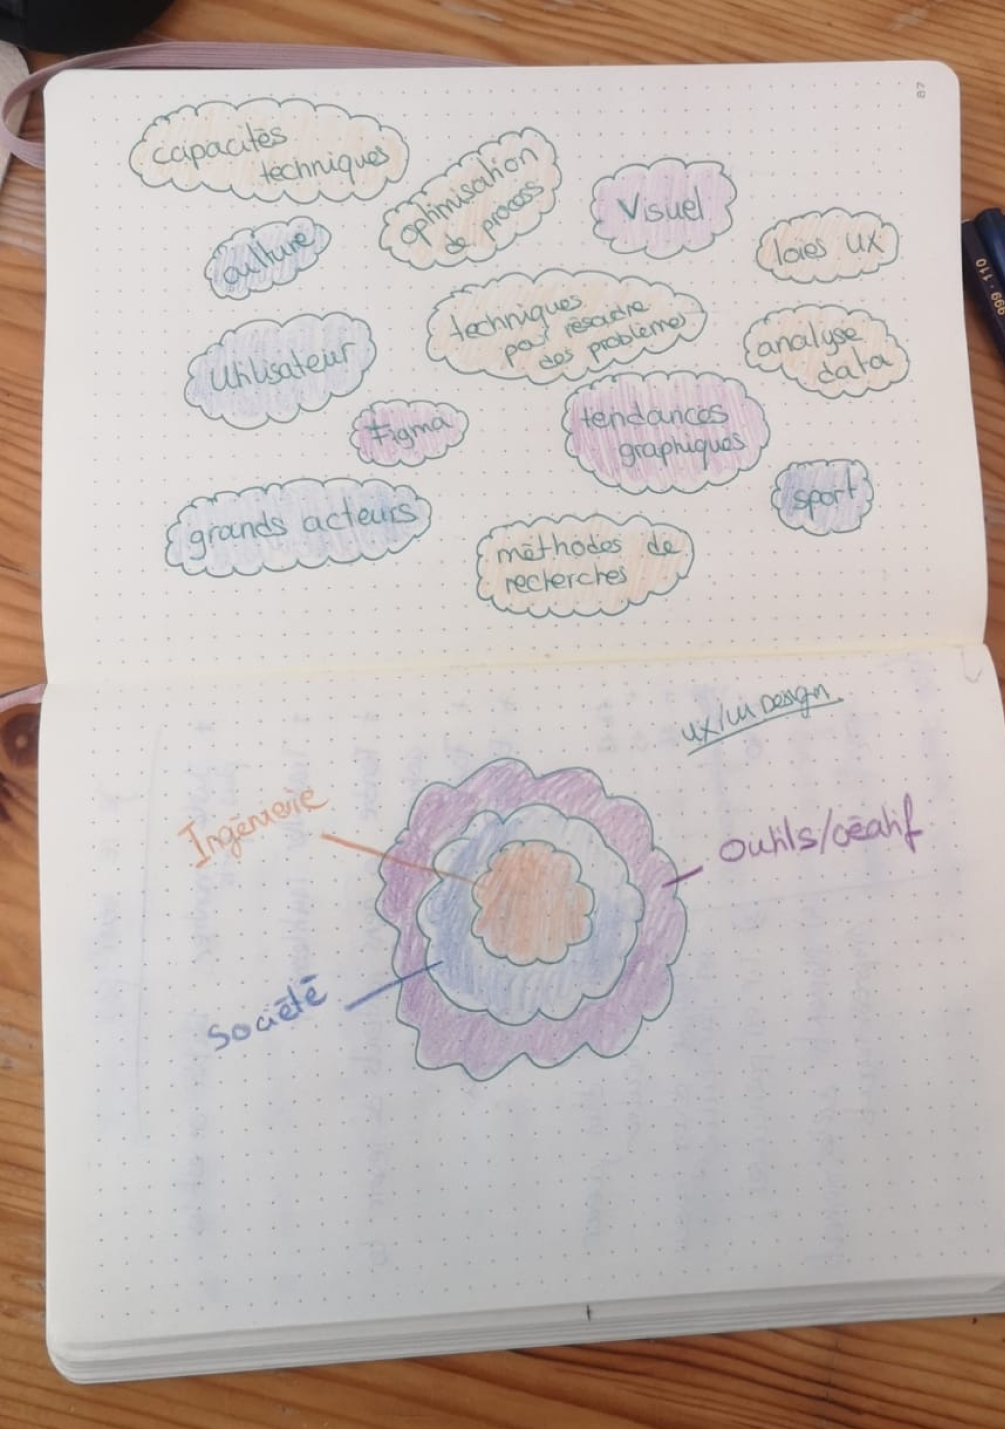 87
capacités
techniques
optimisation
de process
Visuel
culture
loies UX
techniques
pour résoudre
des problèmes
Utilisateur
analyse
data
Figma
tendances
graphiques
grands acteurs
sport
méthodes de
recherches
UX/UI Design
Ingénierie
Outils/céatif
Société